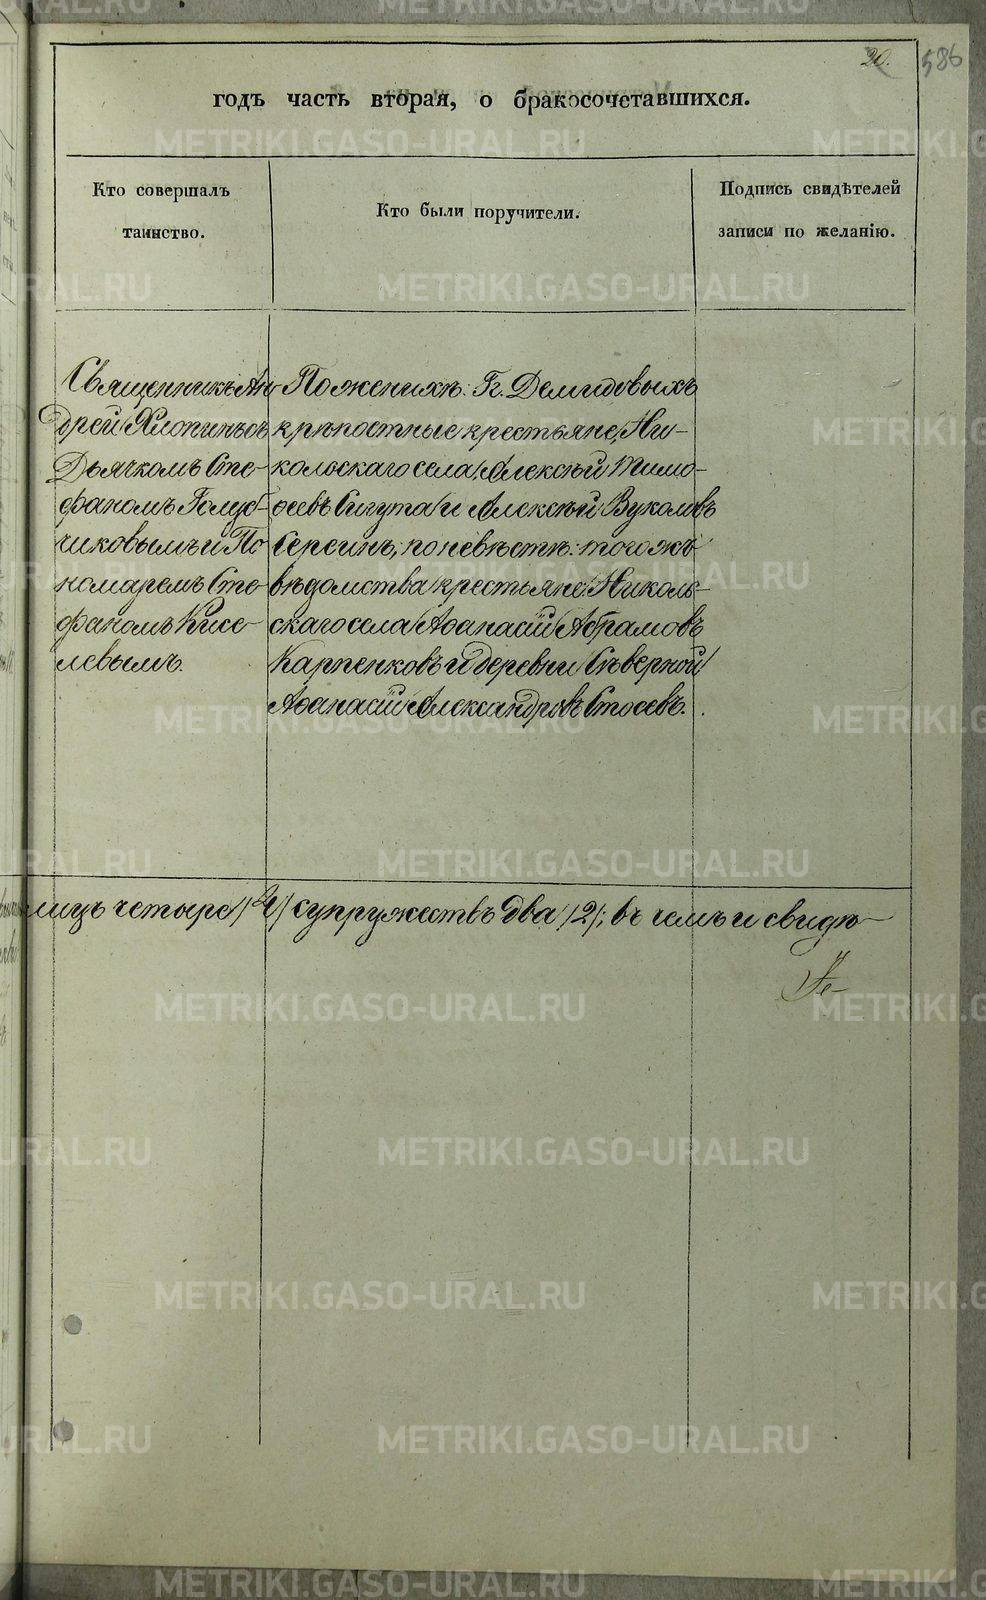 20.
586
годъ часть вторая, о бракосочетавшихся.
Кто совершалъ
таинство.
Кто были поручители.
Подпись свидѣтелей
записи по желанію.
Священникъ Ан-
дрей Хлопинъ съ
Дьячкомъ Сте-
фаномъ Голуб-
чиковымъ и По-
номаремъ Сте-
фаномъ Кисе-
левымъ.
По женихѣ: Гг. Демидовыхъ
крѣпостные крестьяне, Ни-
кольскаго села, Алексѣй Тимо-
ѳеевъ и Алексѣй Вуколовъ
по невѣстѣ: того жъ
вѣдомства крестьяне: Николь-
скаго села Аѳанасій Абрамовъ
Карпенковъ и деревни Сѣверной
Аѳанасій Александровъ
лицъ четыре /4/ супружествъ два /2/; въ чемъ и свидѣ-
те-
METRIKI.GASO-URAL.RU